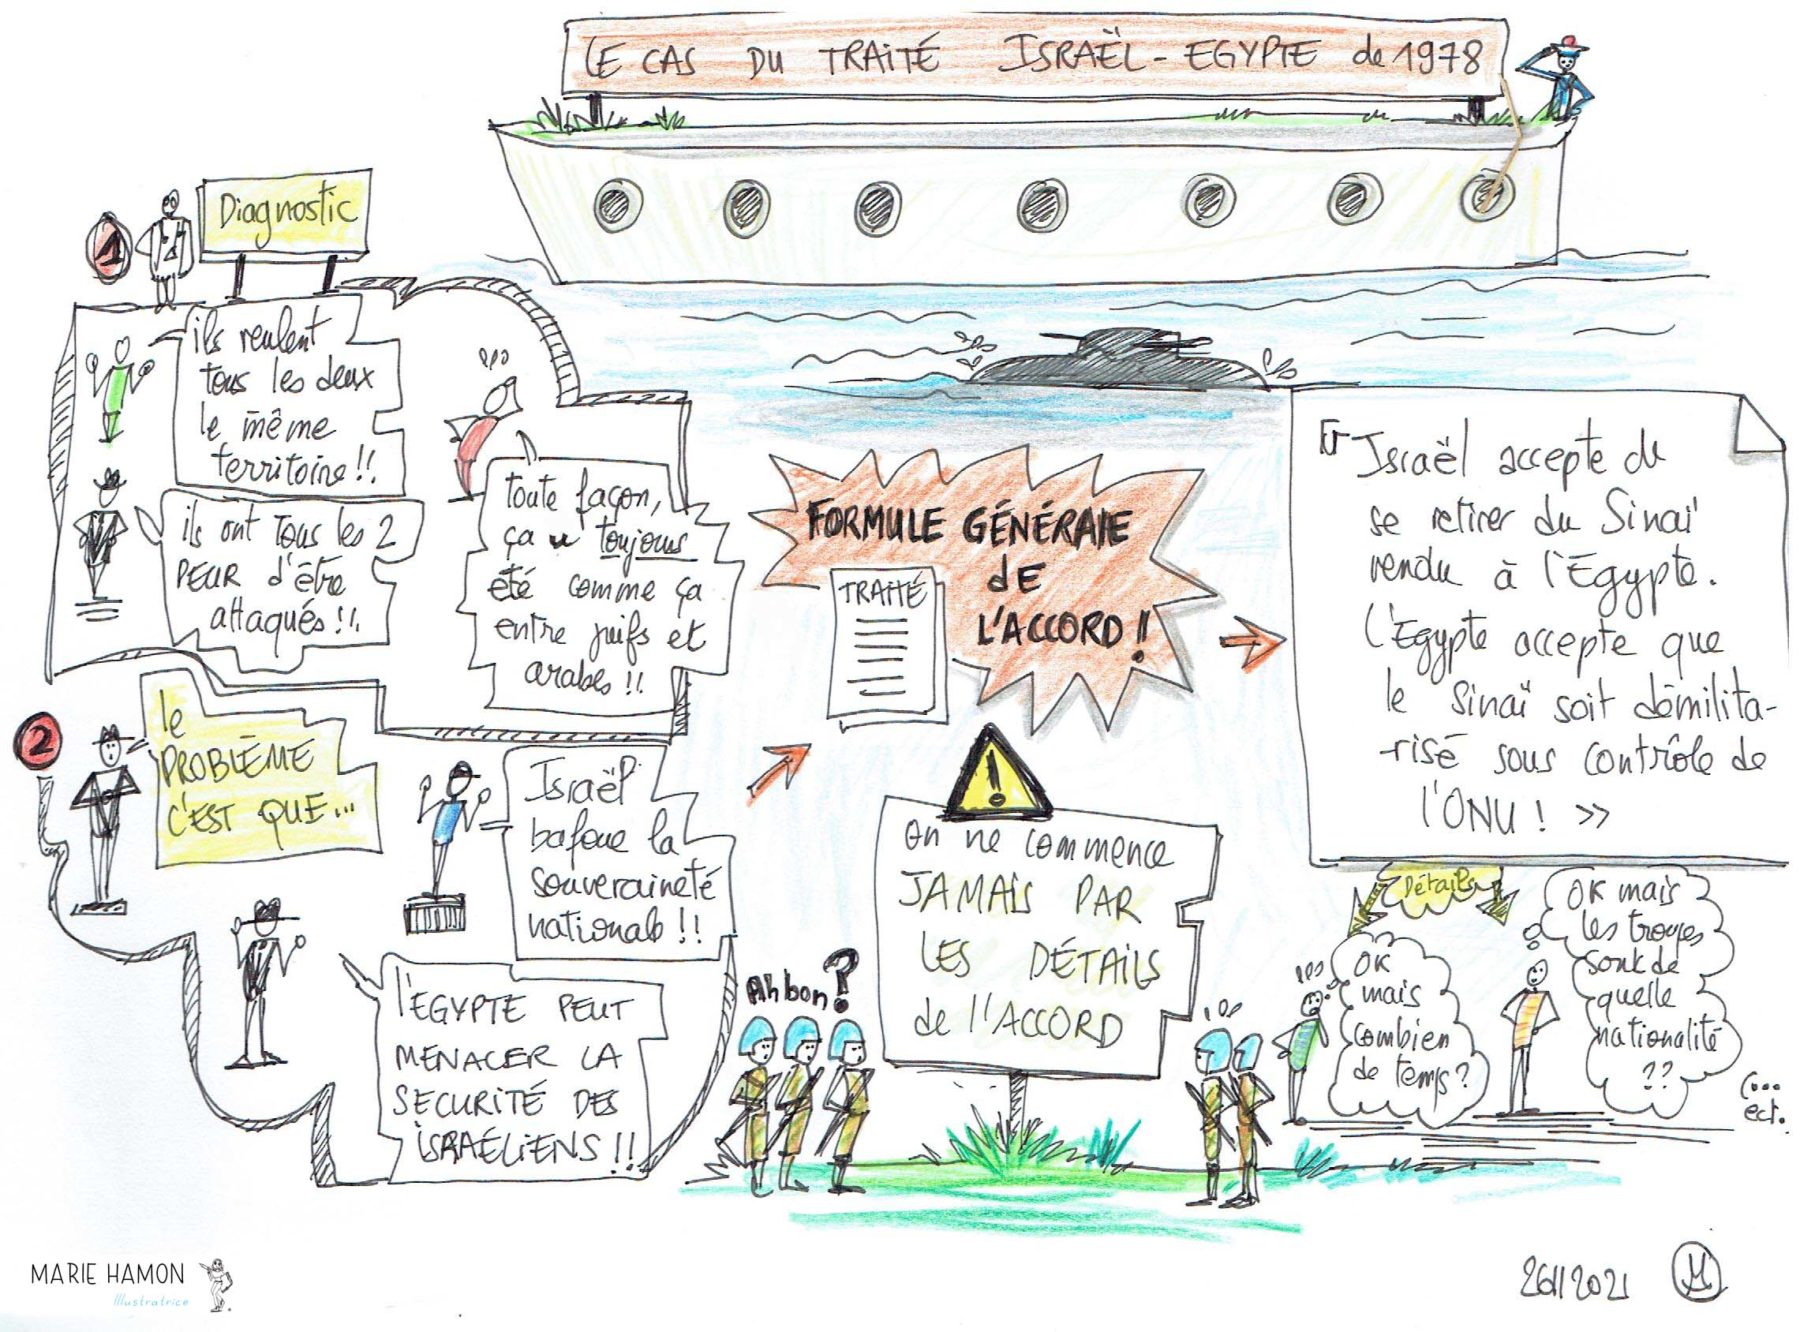 LE CAS DU TRAITÉ ISRAËL-EGYPTE de 1978
1
Diagnostic
ils veulent
tous les deux
le même
territoire!!
ils ont tous les 2
PEUR d'être
attaqués!!
toute façon,
ça a toujours
été comme ça
entre juifs et
arabes!!
2
le
PROBLÈME
C'EST QUE...
Israël
bafoue la
souveraineté
nationale!!
l'EGYPTE PEUT
MENACER LA
SECURITÉ DES
ISRAÉLIENS!!
FORMULE GÉNÉRALE
dE
L'ACCORD!!
TRAITÉ
!
on ne commence
JAMAIS PAR
LES DÉTAILS
de l'ACCORD
Ah bon?
Israël accepte de
se retirer du Sinaï
rendu à l'Egypte.
L'Egypte accepte que
le Sinaï soit démilita-
risé sous contrôle de
l'ONU! »
Détails
OK
mais
combien
de temps?
OK mais
les troupes
sont de
quelle
nationalité
??
(...
ect.
MARIE HAMON
Illustratrice
2611 2021
M